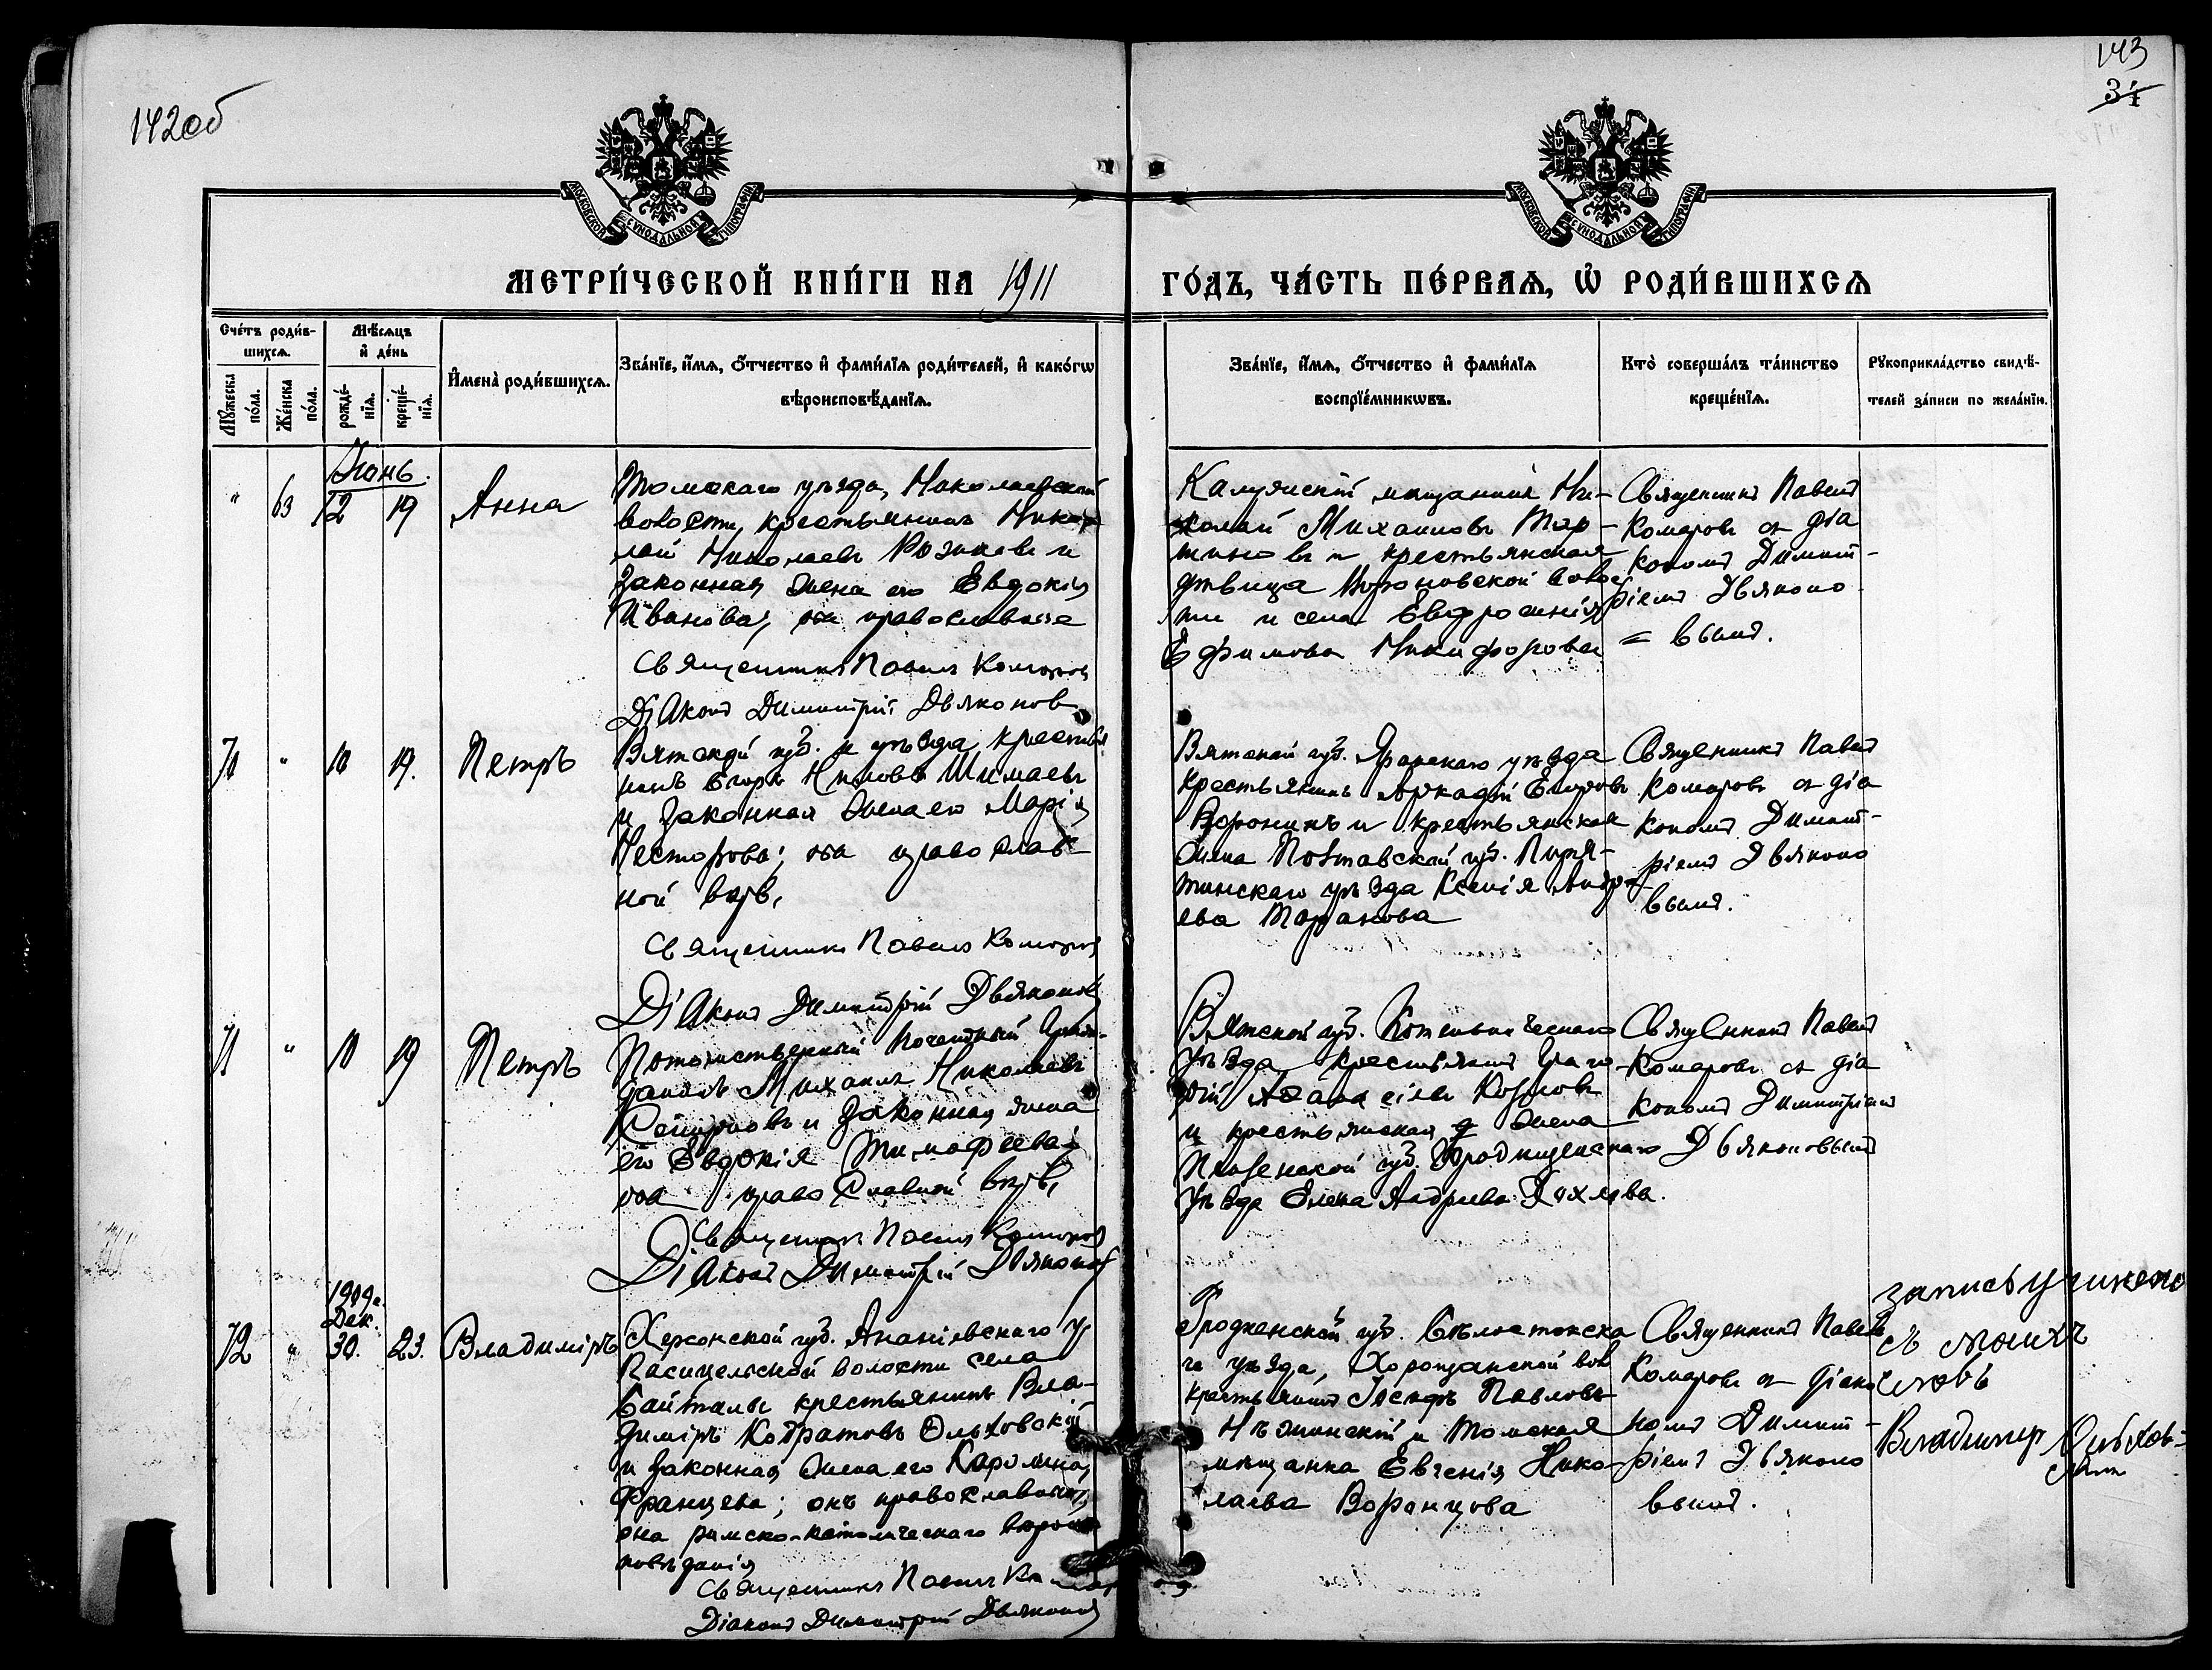 142об
143
34
МОСКОВСКОЙ СѴНОДАЛЬНОЙ ТИПОГРАФІИ
МОСКОВСКОЙ СѴНОДАЛЬНОЙ ТИПОГРАФІИ
МЕТРИ́ЧЕСКОЙ КНИ́ГИ НА 1911
ГО́ДЪ, ЧА́СТЬ ПЕ́РВАѦ, Ѡ҆ РОДИ́ВШИХСѦ
Сче́тъ роди́в-
шихсѧ.
Мѣ́сѧцъ
и҆ де́нь
Мꙋ́жеска
по́ла.
Же́нска
по́ла.
рожде́-
нїѧ.
креще́-
нїѧ.
И҆мена̀ роди́вшихсѧ.
Зва́нїе, и҆́мѧ, ѻ҆́тчество и҆ фами́лїѧ роди́телей, и҆ како́гѡ
вѣроисповѣ́данїѧ.
Зва́нїе, и҆́мѧ, ѻ҆́тчество и҆ фами́лїѧ
воспрїе́мникѡвъ.
Кто̀ соверша́лъ та́инство
креще́нїѧ.
Рꙋкоприкла́дство свидѣ́-
телей за́писи по жела́нїю.
Іюнь.
" 63 12 19 Анна
Томскаго уѣзда, Николаевской
волости, крестьянинъ Нико
лай Николаевъ и
законная жена его Евдокія
Иванова; оба православные
Священникъ Павелъ Комаровъ
Діаконъ Димитрій Дьяконов
мѣщанинъ Ни-
колай Михаиловъ Мар-
тиновъ и крестьянская
дѣвица воло
сти и села Евфросинія
Ефимова Никифорова
Священникъ Павелъ
Комаровъ съ діа
кономъ Димит-
ріемъ Дьяконо
= вымъ.
70 " 10 19. Петръ
Вятской губ. и уѣзда, крестья
нинъ Егоръ Ниловъ
и законная жена его Марія
Несторова; оба православ
ной вѣры,
Священникъ Павелъ Комаровъ
Діаконъ Димитрій Дьяконов
Вятской губ. Яранскаго уѣзда
крестьянинъ Аркадій Егоровъ
Воронинъ и крестьянская
жена Полтавской губ. Пиря-
тинскаго уѣзда Ксенія Андре
ева Таранова
Священникъ Павелъ
Комаровъ съ діа
кономъ Димит-
ріемъ Дьяконо
вымъ.
71 " 10 19 Петръ
Потомственный Почетный Граж-
данинъ Михаилъ Николаевъ
и законная жена
его Евдокія Тимофеева;
оба православной вѣры,
Священникъ Павелъ Комаровъ
Діаконъ Димитрій Дьяконов
Вятской губ. Котельническаго
уѣзда крестьянинъ
Козловъ
и крестьянская жена
Пензенской губ. Городищенскаго
уѣзда Елена Андреева
Священникъ Павелъ
Комаровъ съ діа
кономъ Димитріемъ
Дьяконовымъ
1909г.
Дек.
72 " 30. 23. Владиміръ
Херсонской губ. Ананіевскаго у
Пасицельской волости села
Байталы крестьянинъ Вла-
диміръ Кодратовъ Ольховскій
и законная жена его Каролина
Францева; онъ православный,
она римско-католическаго вѣроис
повѣданія
Священникъ Павелъ Комаровъ
Діаконъ Димитрій Дьяконов
Гродненской губ. Бѣлостокска
го уѣзда, Хорощанской вол
крестьянинъ Іосифъ Павловъ
и Томская
мѣщанка Евгенія Нико-
лаева Воронцова
Священникъ Павелъ
Комаровъ съ діако
номъ Димит-
ріемъ Дьяконо
вымъ.
запись учинено
съ моихъ
словъ
Владимир Ольхов-
ский